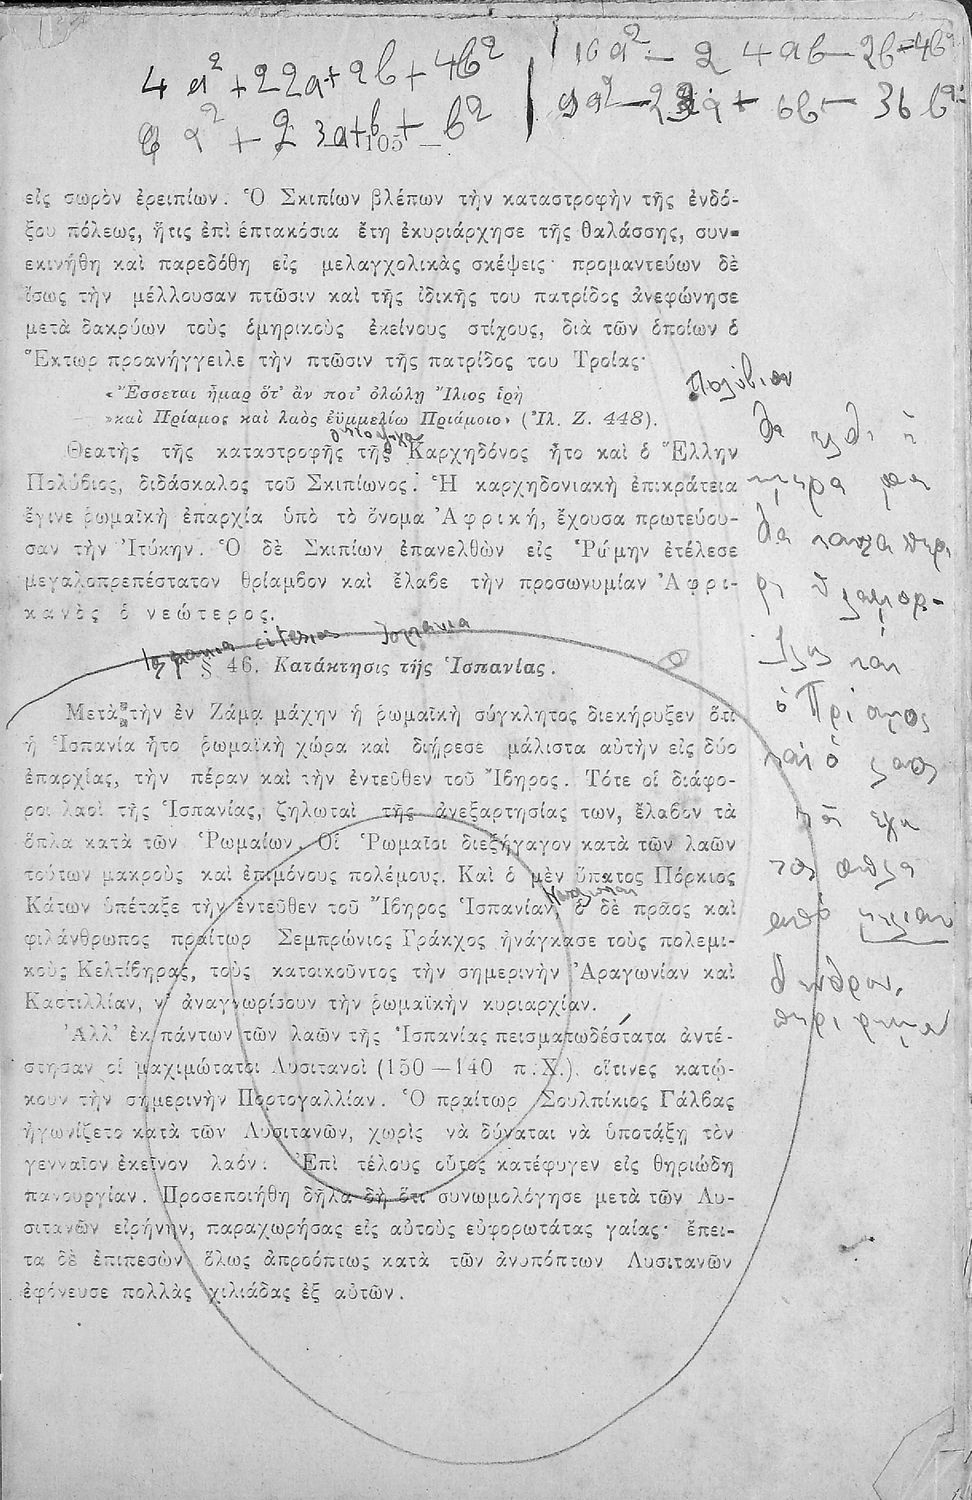 4 a² + 2 2a + 2b + 4b²
10 a² - 2 4ab - 2b = 4b²
a² + 2 3a + b + b²
6b - 36 b²
— 105 —
εἰς σωρὸν ἐρειπίων. Ὁ Σκιπίων βλέπων τὴν καταστροφὴν τῆς ἐνδό-
ξου πόλεως, ἥτις ἐπὶ ἑπτακόσια ἔτη ἐκυριάρχησε τῆς θαλάσσης, συν-
εκινήθη καὶ παρεδόθη εἰς μελαγχολικὰς σκέψεις· προμαντεύων δὲ
ἴσως τὴν μέλλουσαν πτῶσιν καὶ τῆς ἰδικῆς του πατρίδος ἀνεφώνησε
μετὰ δακρύων τοὺς ὁμηρικοὺς ἐκείνους στίχους, διὰ τῶν ὁποίων ὁ
Ἕκτωρ προανήγγειλε τὴν πτῶσιν τῆς πατρίδος του Τροίας·
«Ἔσσεται ἦμαρ ὅτ' ἄν ποτ' ὀλώλῃ Ἴλιος ἱρὴ
»καὶ Πρίαμος καὶ λαὸς ἐϋμμελίω Πριάμοιο» (Ἰλ. Ζ. 448).
Θεατὴς τῆς καταστροφῆς τῆς Καρχηδόνος ἦτο καὶ ὁ Ἕλλην
Πολύβιος, διδάσκαλος τοῦ Σκιπίωνος. Ἡ καρχηδονιακὴ ἐπικράτεια
ἔγινε ῥωμαϊκὴ ἐπαρχία ὑπὸ τὸ ὄνομα Ἀφρική, ἔχουσα πρωτεύου-
σαν τὴν Ἰτύκην. Ὁ δὲ Σκιπίων ἐπανελθὼν εἰς Ῥώμην ἐτέλεσε
μεγαλοπρεπέστατον θρίαμβον καὶ ἔλαβε τὴν προσωνυμίαν Ἀφρι-
κανὸς ὁ νεώτερος.
§ 46. Κατάκτησις τῆς Ἱσπανίας.
Μετὰ τὴν ἐν Ζάμᾳ μάχην ἡ ῥωμαϊκὴ σύγκλητος διεκήρυξεν ὅτι
ἡ Ἱσπανία ἦτο ῥωμαϊκὴ χώρα καὶ διῄρεσε μάλιστα αὐτὴν εἰς δύο
ἐπαρχίας, τὴν πέραν καὶ τὴν ἐντεῦθεν τοῦ Ἴβηρος. Τότε οἱ διάφο-
ροι λαοὶ τῆς Ἱσπανίας, ζηλωταὶ τῆς ἀνεξαρτησίας των, ἔλαβον τὰ
ὅπλα κατὰ τῶν Ῥωμαίων. Οἱ Ῥωμαῖοι διεξήγαγον κατὰ τῶν λαῶν
τούτων μακροὺς καὶ ἐπιμόνους πολέμους. Καὶ ὁ μὲν ὕπατος Πόρκιος
Κάτων ὑπέταξε τὴν ἐντεῦθεν τοῦ Ἴβηρος Ἱσπανίαν, ὁ δὲ πρᾶος καὶ
φιλάνθρωπος πραίτωρ Σεμπρώνιος Γράκχος ἠνάγκασε τοὺς πολεμι-
κοὺς Κελτίβηρας, τοὺς κατοικοῦντος τὴν σημερινὴν Ἀραγωνίαν καὶ
Καστιλλίαν, ν' ἀναγνωρίσουν τὴν ῥωμαϊκὴν κυριαρχίαν.
Ἀλλ' ἐκ πάντων τῶν λαῶν τῆς Ἱσπανίας πεισματωδέστατα ἀντέ-
στησαν οἱ μαχιμώτατοι Λυσιτανοὶ (150—140 π. Χ.). οἵτινες κατῴ-
κουν τὴν σημερινὴν Πορτογαλλίαν. Ὁ πραίτωρ Σουλπίκιος Γάλβας
ἠγωνίζετο κατὰ τῶν Λυσιτανῶν, χωρὶς νὰ δύναται νὰ ὑποτάξῃ τὸν
γενναῖον ἐκεῖνον λαόν. Ἐπὶ τέλους οὗτος κατέφυγεν εἰς θηριώδη
πανουργίαν. Προσεποιήθη δηλα δὴ ὅτι συνωμολόγησε μετὰ τῶν Λυ-
σιτανῶν εἰρήνην, παραχωρήσας εἰς αὐτοὺς εὐφορωτάτας γαίας· ἔπει-
τα δὲ ἐπιπεσὼν ὅλως ἀπροόπτως κατὰ τῶν ἀνυπόπτων Λυσιτανῶν
ἐφόνευσε πολλὰς χιλιάδας ἐξ αὐτῶν.
Πολύβιον
θα ελθι η
ημερα
θα
ὁ Πρίαμος
και ὁ λαος